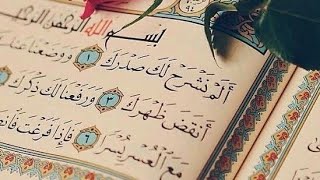 بِسْمِ اللَّهِ الرَّحْمَنِ الرَّحِيمِ
أَلَمْ نَشْرَحْ لَكَ صَدْرَكَ ١ وَوَضَعْنَا عَنكَ
أَنقَضَ ظَهْرَكَ ٣ وَرَفَعْنَا لَكَ ذِكْرَكَ
مَعَ الْعُسْرِ يُسْرًا ٦ فَإِذَا فَرَغْتَ فَانصَ